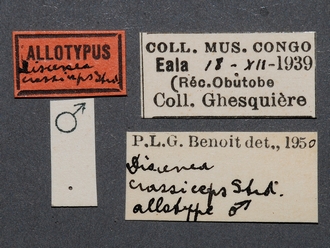 ALLOTYPUS
Discenea
crassiceps Strd.
♂
COLL. MUS. CONGO
Eala 18-XII-1939
(Réc. Obutobe
Coll. Ghesquière
P.L.G. Benoit det., 1950
Discenea
crassiceps Strd.
allotype ♂